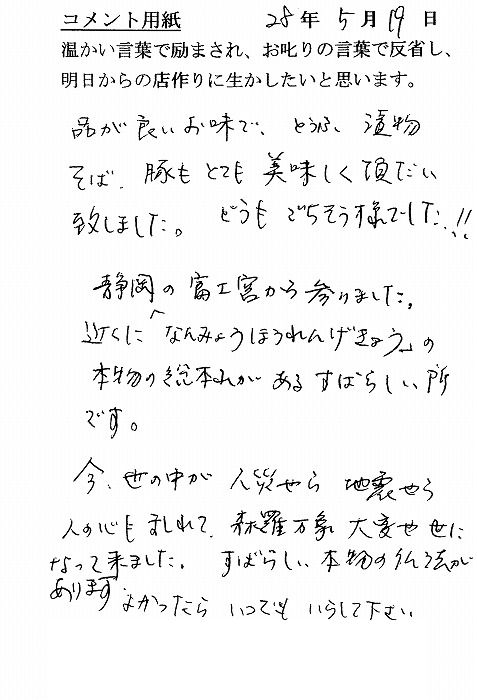 コメント用紙　28年5月19日
温かい言葉で励まされ、お叱りの言葉で反省し、
明日からの店作りに生かしたいと思います。
品が良いお味で、とうふ、漬物
そば、豚もとても美味しく頂だい
致しました。どうもごちそう様でした!!
静岡の富士宮から参りました。
近くに「なんみょうほうれんげきょう」の
本物の総本山がある すばらしい所
です。
今、世の中が 人災やら 地震やら
人の心も まじれて、森羅万象 大変や 世に
なって来ました。すばらしい 本物の仏法が
あります
よかったら いつでも いらして下さい